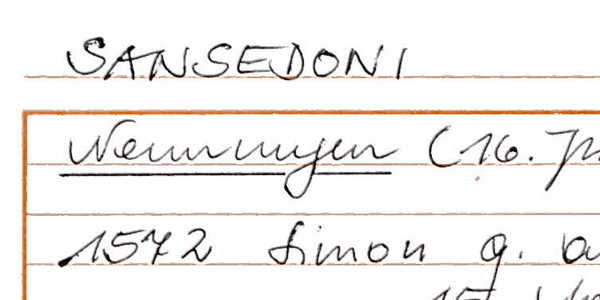 SANSEDONI
Nennungen (16. Jh
1572 Simon g. a
15